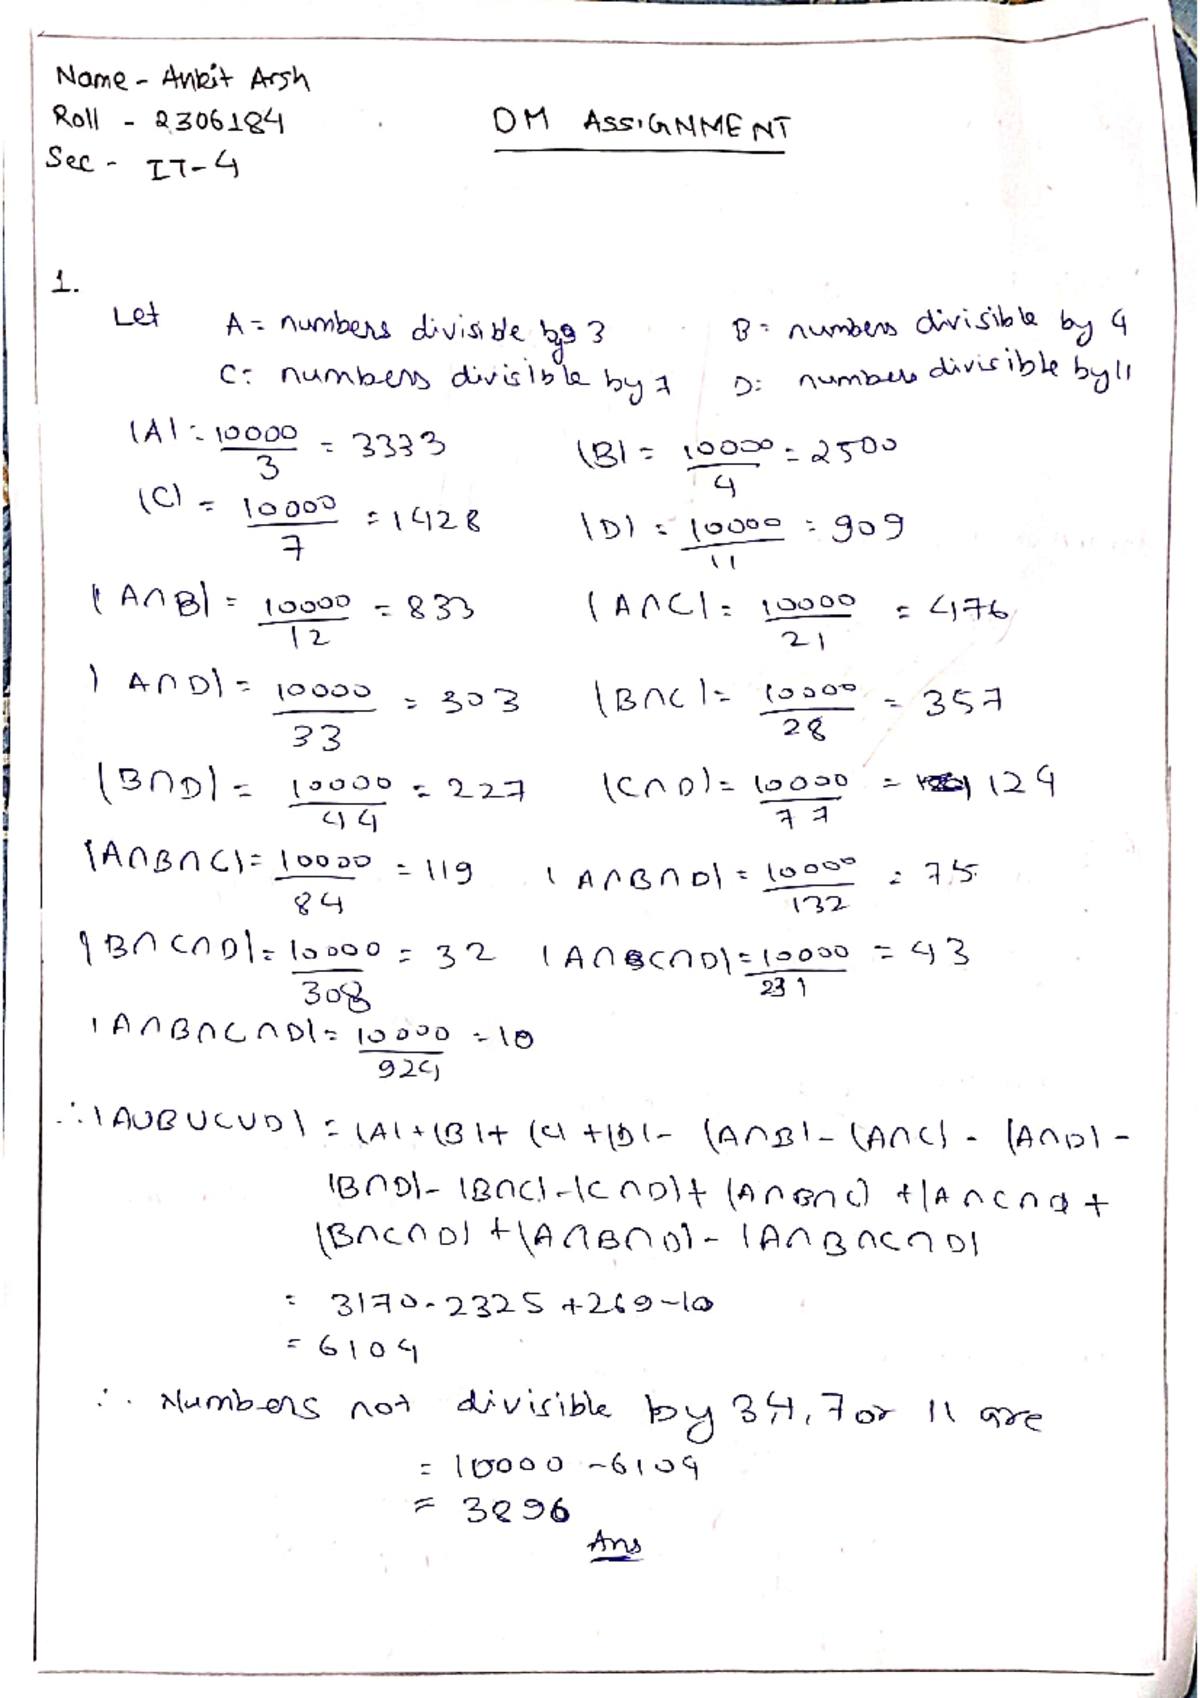 Name - Ankit Arsh
Roll - 2306184
DM ASSIGNMENT
Sec - IT-4
1.
Let A = numbers divisible by 3 B = numbers divisible by 4
C: numbers divisible by 7 D: numbers divisible by 11
|A| = 10000/3 = 3333 |B| = 10000/4 = 2500
|C| = 10000/7 = 1428 |D| = 10000/11 = 909
|A∩B| = 10000/12 = 833 |A∩C| = 10000/21 = 476
|A∩D| = 10000/33 = 303 |B∩C| = 10000/28 = 357
|B∩D| = 10000/44 = 227 |C∩D| = 10000/77 = 129
|A∩B∩C| = 10000/84 = 119 |A∩B∩D| = 10000/132 = 75
|B∩C∩D| = 10000/308 = 32 |A∩C∩D| = 10000/231 = 43
|A∩B∩C∩D| = 10000/924 = 10
∴ |AUBUCUD| = |A| + |B| + |C| + |D| - |A∩B| - |A∩C| - |A∩D| -
|B∩D| - |B∩C| - |C∩D| + |A∩B∩C| + |A∩C∩D| +
|B∩C∩D| + |A∩B∩D| - |A∩B∩C∩D|
= 3170 - 2325 + 269 - 10
= 6104
∴ Numbers not divisible by 3,4, 7 or 11 are
= 10000 - 6104
= 3896
Ans